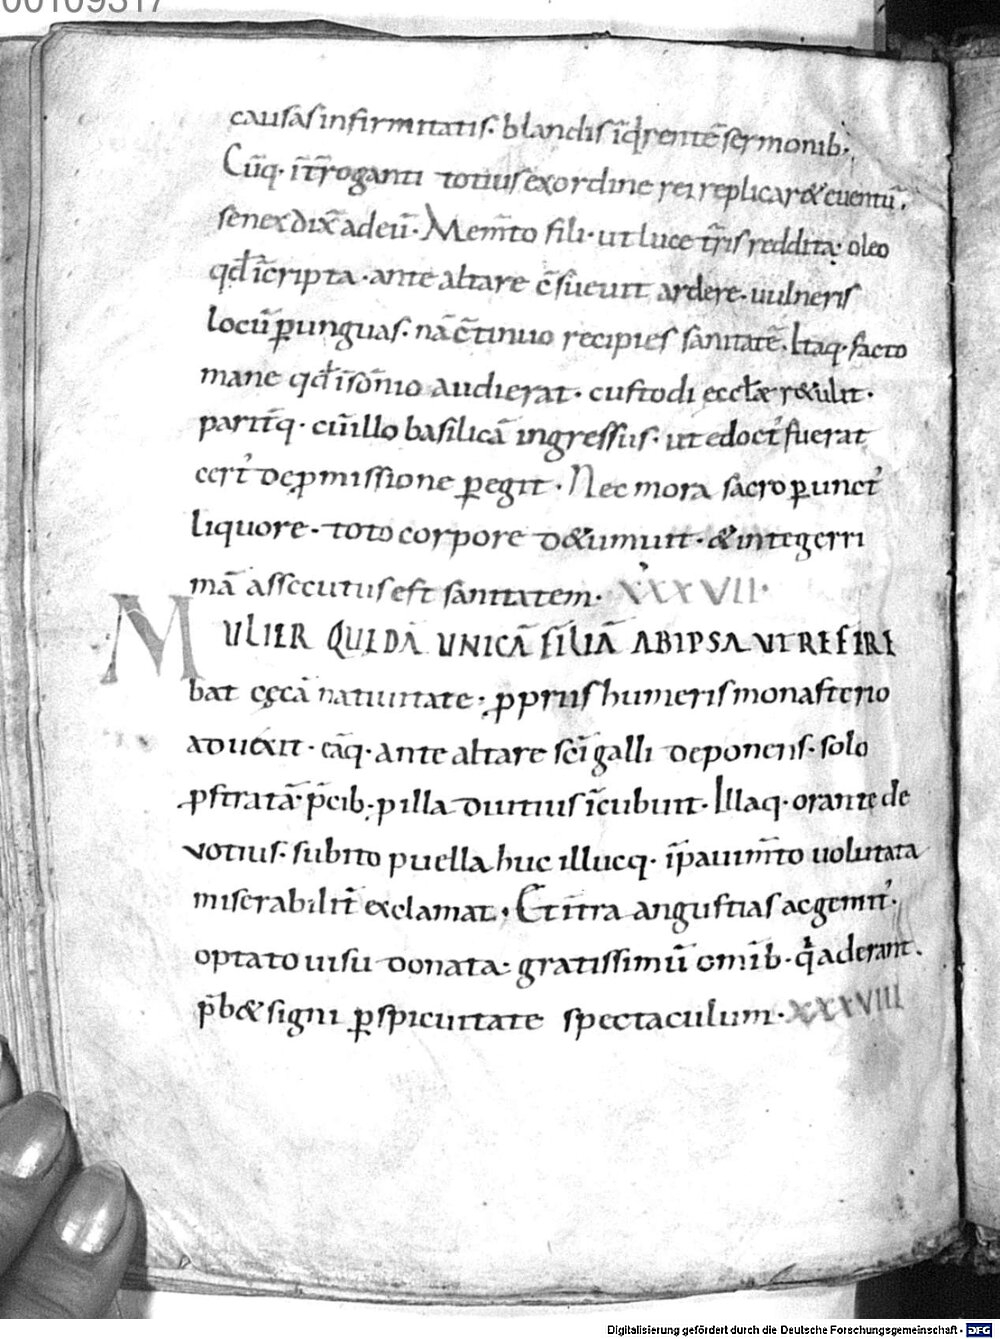 00109317
causas infirmitatis· blandis īq̄rente sermonib;
Cūq· īt̄roganti totius exordine rei replicar& euentū.
senex dix̄ ad eū· Mem̄to fili· ut luce t̄ris reddita; oleo
qđ īcripta· ante altare c̄sueuit ardere· uulneris
locū ꝑunguas· nā c̄tinuo recipies sanitatē. Itaq· facto
mane qđ īsōnio audierat· custodi eccłæ r&ulit·
parit̄q· cū illo basilicā ingressus· ut edoct' fuerat
cert' de ꝓmissione ꝑegit· Nec mora sacro ꝑunct'
liquore· toto corpore d&umuit· & integerri
mā assecutus est sanitatem· XXXVII·
MULIER QUEDĀ UNICĀ FILIĀ AB IPSA UT REFERE
bat cęcā natiuitate· ꝓpriis humeris monasterio
aduexit· eāq· ante altare sc̄i galli deponens· solo
ꝓstrata p̄cib; p illa diutius īcubuit· Illaq· orante de
votius· subito puella huc illucq· ī pauim̄to uolutata
miserabilit̄ exclamat· Et īt̄ra angustias ac gemit'·
optato uisu donata· gratissimū om̄ib· q̄ aderant.
p̄b& signi ꝑspicuitate spectaculum· XXXVIII
Digitalisierung gefördert durch die Deutsche Forschungsgemeinschaft - DFG